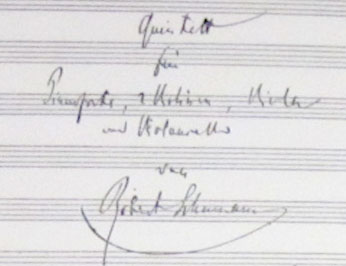 Quintett
für
Pianoforte, 2 Violinen, Viola
und Violoncello
von
Robert Schumann